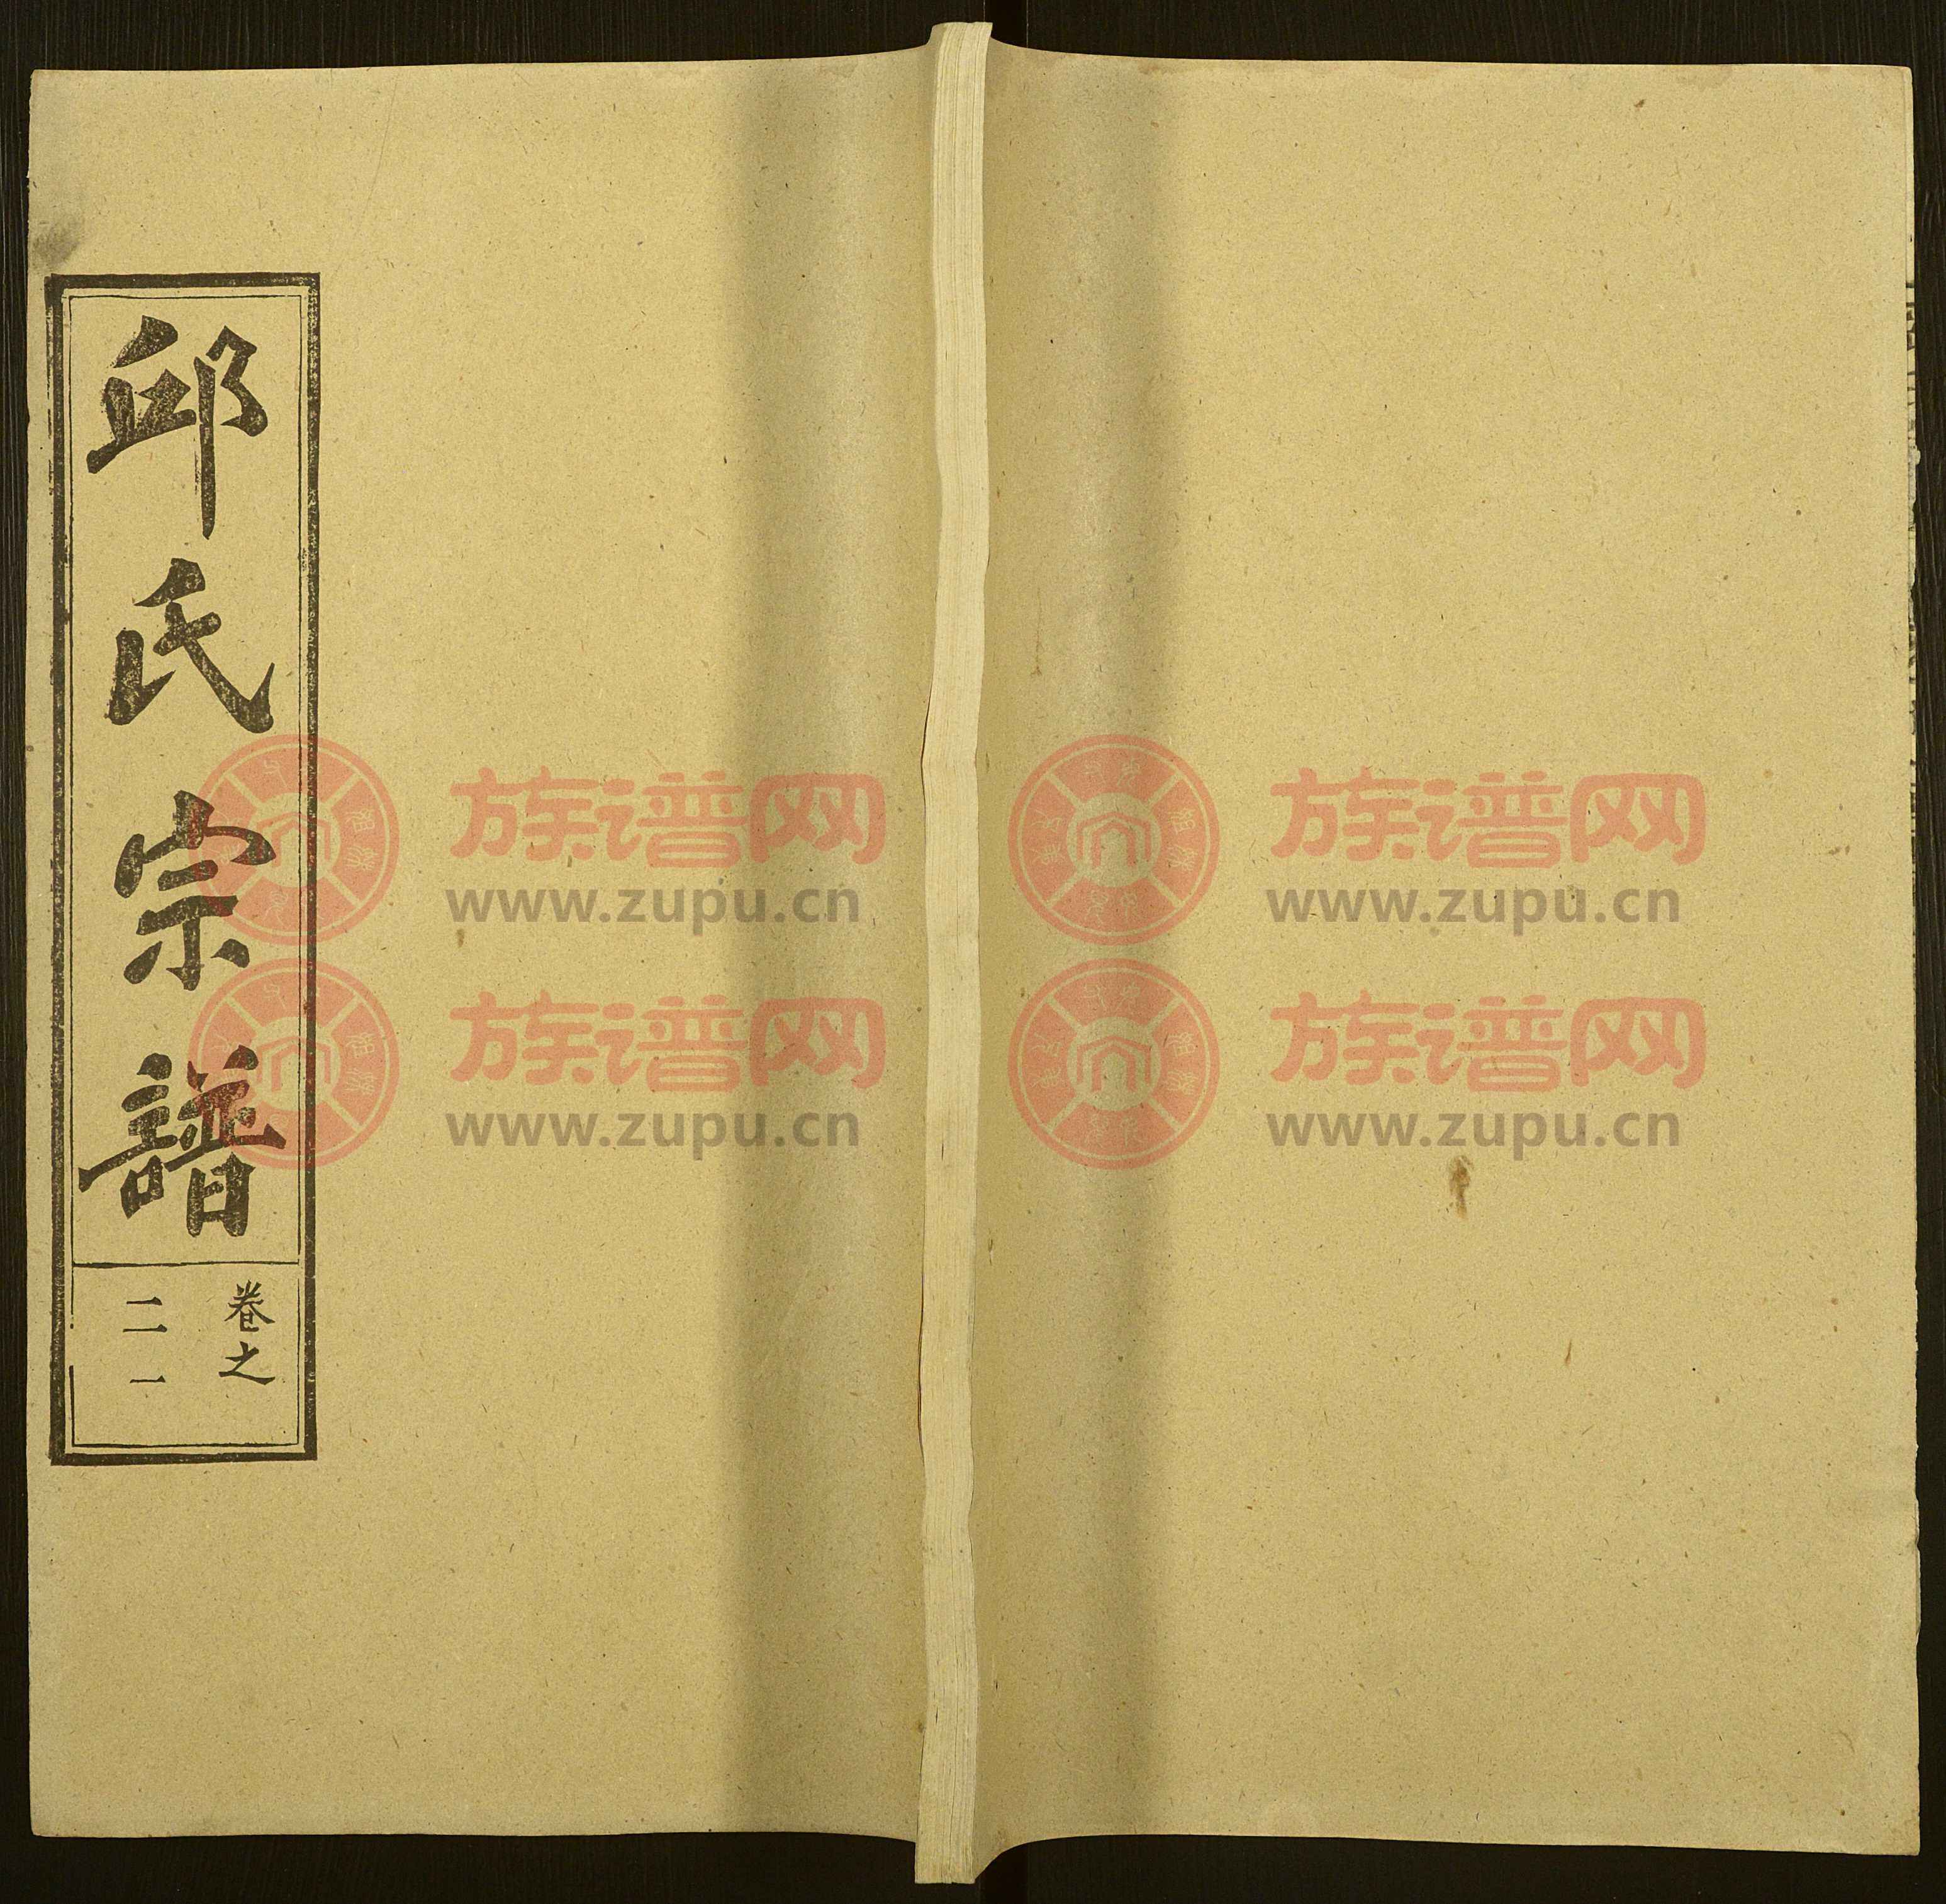 邱氏宗譜
卷之
二一
族谱网
www.zupu.cn
族谱网
www.zupu.cn
族谱网
www.zupu.cn
族谱网
www.zupu.cn